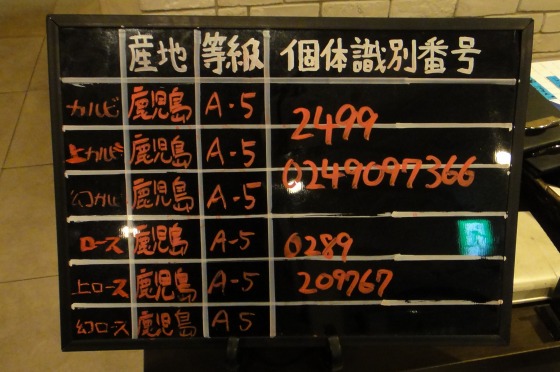 産地 等級 個体識別番号
カルビ 鹿児島 A・5
2499
上カルビ 鹿児島 A・5
0249097366
幻カルビ 鹿児島 A・5
ロース 鹿児島 A-5
0289
上ロース 鹿児島 A-5
209767
幻ロース 鹿児島 A 5